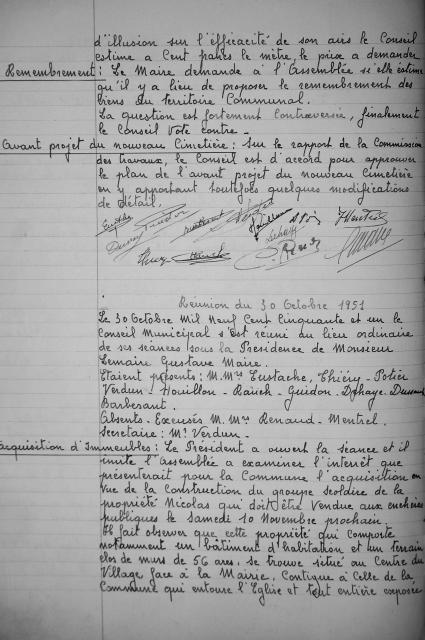 d'illusion sur l'éfficacité de son avis le Conseil
estime a Cent francs le mètre, le prix a demander
Remembrement: Le Maire demande à l'Assemblée si elle estime
qu'il y a lieu de proposer le remembrement des
biens du territoire Communal.
La question est fortement controversée, finalement
le Conseil vote contre -
Avant projet du nouveau Cimetière: Sur le rapport de la Commission
des travaux, le Conseil est d'accord pour approuver
le plan de l'avant projet du nouveau Cimetière
en y apportant toutefois quelques modifications
de détail.
Réunion du 30 Octobre 1951
Le 30 Octobre Mil Neuf Cent Cinquante et un le
Conseil Municipal s'est réuni au lieu ordinaire
de ses séances sous la Présidence de Monsieur
Lemaire Gustave Maire.
Etaient présents: M.Mrs Eustache, Thiéry - Potier
Verdun - Houillon - Rauch - Guidon - Dehaye
Barbesant.
Absents - Excusés M.Mrs Renaud - Mentrel.
Secretaire: Mr Verdun -
acquisition d'Immeubles: Le Président a ouvert la séance et il
invite l'Assemblée a examiner l'intérêt que
présenterait pour la Commune l'acquisition en
vue de la Construction du groupe scolaire de la
propriété Nicolas qui doit être vendue aux enchères
publiques le Samedi 10 Novembre prochain.
Il fait observer que cette propriété qui comporte
notamment un bâtiment d'habitation et un terrain
clos de murs de 56 ares, se trouve situé au Centre du
Village face à la Mairie, Contigue à Celle de la
Commune qui entoure l'Eglise et tout entière exposée